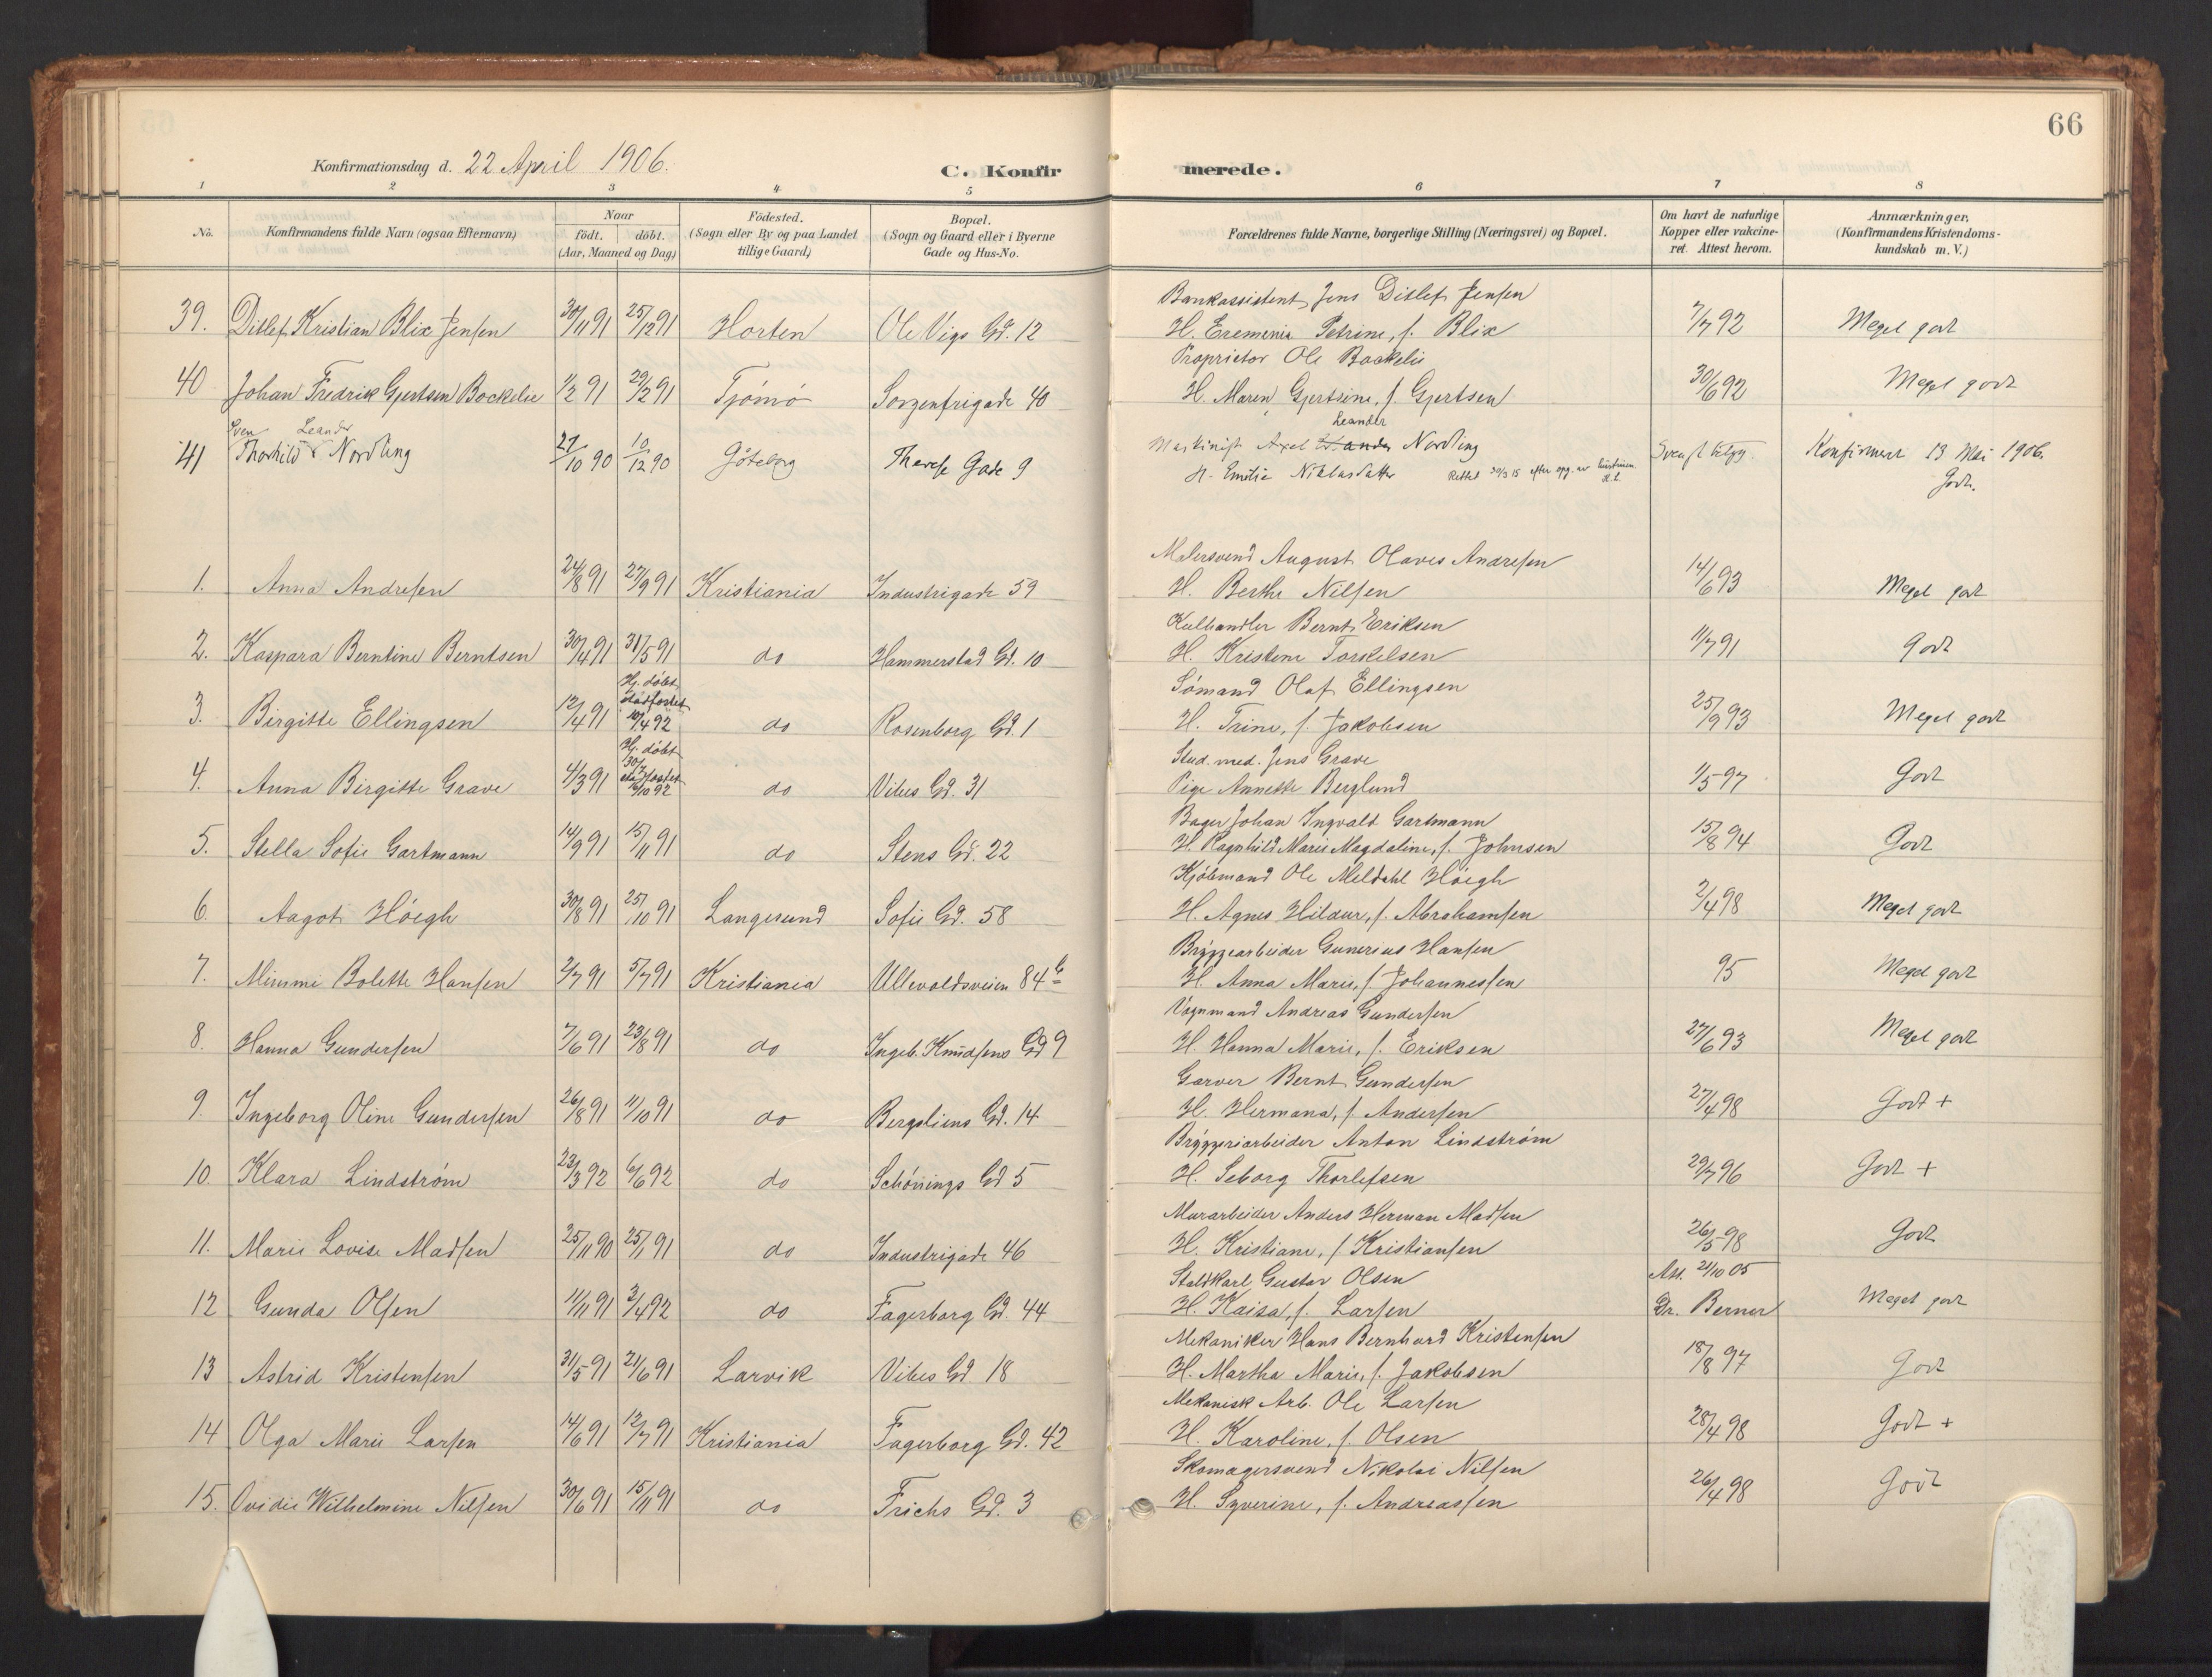 66
Konfirmationsdag d. 22 April 1906.
C. Konfirmerede.
1 2 3 4 5 6 7 8
No.
Konfirmandens fulde Navn (ogsaa Efternavn)
Naar
födt. döbt.
(Aar, Maaned og Dag)
Födested.
(Sogn eller By og paa Landet
tillige Gaard)
Bopæl.
(Sogn og Gaard eller i Byerne
Gade og Hus-No.
Forældrenes fulde Navne, borgerlige Stilling (Næringsvei) og Bopæl.
Om havt de naturlige
Kopper eller vakcine-
ret. Attest herom.
Anmærkninger.
(Konfirmandens Kristendoms-
kundskab m. V.)
Bankassistent Jens Ditlef Jensen
39. Ditlef Kristian Blix Jensen 30/11 91 25/12 91 Horten Ole Vigs Gd. 12 H. Eremenia Petrine, f. Blix 7/7 92 Meget godt
Proprietær Ole Bockelie
40 Johan Fredrik Gjertsen Bockelie 1/2 91 29/12 91 Tjömö Sorgenfrigade 40 H. Maren Gjertsine, f. Gjertsen 30/6 92 Meget godt
Sven Leander
Leander
41 Thorhild Nordling 27/10 90 10/12 90 Göteborg Therese Gade 9 Maskinist Axel Nordling Svensk Konfirmert 13 Mai 1906.
H. Emilie Niklasdatter Rettet 30/3 15 efter opg. av hustruen. Godt.
Malersvend August Olaves Andresen
1. Anna Andresen 24/8 91 27/9 91 Kristiania Industrigade 59 H. Berthe Nilsen 14/6 93 Meget godt
Kulhandler Bernt Eriksen
2. Kaspara Berntine Berntsen 30/4 91 31/5 91 do Hammerstad Gd. 10 H. Kristine Torkelsen 11/7 91 Godt
Hj. döbt
stadfæstet
Sömand Olaf Ellingsen
3. Birgitte Ellingsen 12/4 91 10/4 92 do Rosenborg Gd. 1 H. Trine, f. Jakobsen 25/9 93 Meget godt
Hj. döbt
Stud. med. Jens Grave
4. Anna Birgitte Grave 4/3 91 stadfæstet 16/10 92 do Vibes Gd. 31 Pige Annette Berglund 1/5 97 Godt
Bager Johan Ingvald Gartmann
5. Stella Sofie Gartmann 14/9 91 15/11 91 do Stens Gd. 22 H. Ragnhild Marie Magdaline, f. Johnsen 15/8 94 Godt
Kjöbmand Ole Meldahl Höegh
6. Aagot Höegh 30/8 91 25/10 91 Langesund Sofie Gd. 58 H. Agnes Hildur, f. Abrahamsen 2/4 98 Meget godt
Bryggearbeider Gunerius Hansen
7. Mimmi Bolette Hansen 2/7 91 5/7 91 Kristiania Ullevoldsveien 84 b H. Anna Marie, f. Johannessen 95 Meget godt
Vognmand Andreas Gundersen
8. Hanna Gundersen 7/6 91 23/8 91 do Ingeb. Knudsens Gd 9 H. Hanna Marie, f. Eriksen 27/6 93 Meget godt
Garver Bernt Gundersen
9. Ingeborg Oline Gundersen 26/8 91 11/10 91 do Bergsliens Gd. 14 H. Hermana, f. Andersen 27/4 98 Godt +
Bryggeriarbeider Anton Lindström
10. Klara Lindström 23/3 92 6/6 92 do Schönings Gd 5 H. Seborg Thorlefsen 29/7 96 Godt +
Murarbeider Anders Herman Madsen
11. Marie Lovise Madsen 25/11 90 25/1 91 do Industrigade 46 H. Kristiane, f. Kristiansen 26/5 98 Godt
Staldkarl Gustav Olsen Att. 21/10 05
12 Gunda Olsen 11/11 91 3/4 92 do Fagerborg Gd. 44 H. Kaisa, f. Larsen Dr. Berner Meget godt
Mekaniker Hans Bernhard Kristensen
13 Astrid Kristensen 31/5 91 21/6 91 Larvik Vibes Gd. 18 H. Martha Marie, f. Jakobsen 18/8 97 Godt
Mekanisk Arb. Ole Larsen
14 Olga Marie Larsen 14/6 91 12/7 91 Kristiania Fagerborg Gd. 42 H. Karoline, f. Olsen 28/4 98 Godt +
Skomagersvend Nikolai Nilsen
15. Ovidie Wilhelmine Nilsen 30/6 91 15/11 91 do Frichs Gd. 3 H. Syverine, f. Andreassen 26/4 98 Godt